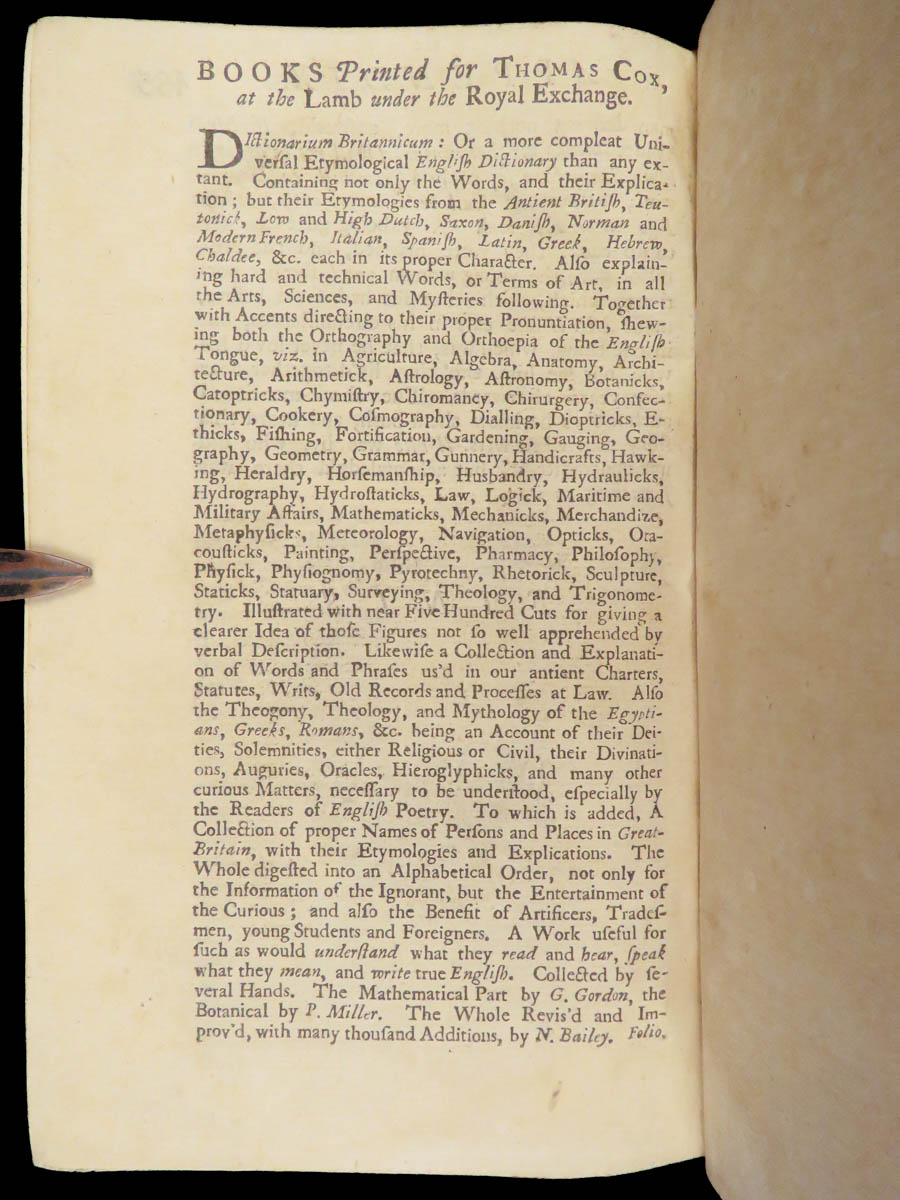 BOOKS Printed for THOMAS COX,
at the Lamb under the Royal Exchange.
DIctionarium Britannicum: Or a more compleat Uni-
verſal Etymological Engliſh Dictionary than any ex-
tant. Containing not only the Words, and their Explica-
tion; but their Etymologies from the Antient Britiſh, Teu-
tonick, Low and High Dutch, Saxon, Daniſh, Norman and
Modern French, Italian, Spaniſh, Latin, Greek, Hebrew,
Chaldee, &c. each in its proper Character. Alſo explain-
ing hard and technical Words, or Terms of Art, in all
the Arts, Sciences, and Myſteries following. Together
with Accents directing to their proper Pronuntiation, ſhew-
ing both the Orthography and Orthoepia of the Engliſh
Tongue, viz. in Agriculture, Algebra, Anatomy, Archi-
tecture, Arithmetick, Aſtrology, Aſtronomy, Botanicks,
Catoptricks, Chymiſtry, Chiromancy, Chirurgery, Confec-
tionary, Cookery, Coſmography, Dialling, Dioptricks, E-
thicks, Fiſhing, Fortification, Gardening, Gauging, Geo-
graphy, Geometry, Grammar, Gunnery, Handicrafts, Hawk-
ing, Heraldry, Horſemanſhip, Husbandry, Hydraulicks,
Hydrography, Hydroſtaticks, Law, Logick, Maritime and
Military Affairs, Mathematicks, Mechanicks, Merchandize,
Metaphyſicks, Meteorology, Navigation, Opticks, Ota-
couſticks, Painting, Perſpective, Pharmacy, Philoſophy,
Phyſick, Phyſiognomy, Pyrotechny, Rhetorick, Sculpture,
Staticks, Statuary, Surveying, Theology, and Trigonome-
try. Illuſtrated with near Five Hundred Cuts for giving a
clearer Idea of thoſe Figures not ſo well apprehended by
verbal Deſcription. Likewiſe a Collection and Explanati-
on of Words and Phraſes us'd in our antient Charters,
Statutes, Writs, Old Records and Proceſſes at Law. Alſo
the Theogony, Theology, and Mythology of the Egypti-
ans, Greeks, Romans, &c. being an Account of their Dei-
ties, Solemnities, either Religious or Civil, their Divinati-
ons, Auguries, Oracles, Hieroglyphicks, and many other
curious Matters, neceſſary to be underſtood, eſpecially by
the Readers of Engliſh Poetry. To which is added, A
Collection of proper Names of Perſons and Places in Great-
Britain, with their Etymologies and Explications. The
Whole digeſted into an Alphabetical Order, not only for
the Information of the Ignorant, but the Entertainment of
the Curious; and alſo the Benefit of Artificers, Tradeſ-
men, young Students and Foreigners. A Work uſeful for
ſuch as would underſtand what they read and hear, ſpeak
what they mean, and write true Engliſh. Collected by ſe-
veral Hands. The Mathematical Part by G. Gordon, the
Botanical by P. Miller. The Whole Revis'd and Im-
prov'd, with many thouſand Additions, by N. Bailey. Folio.